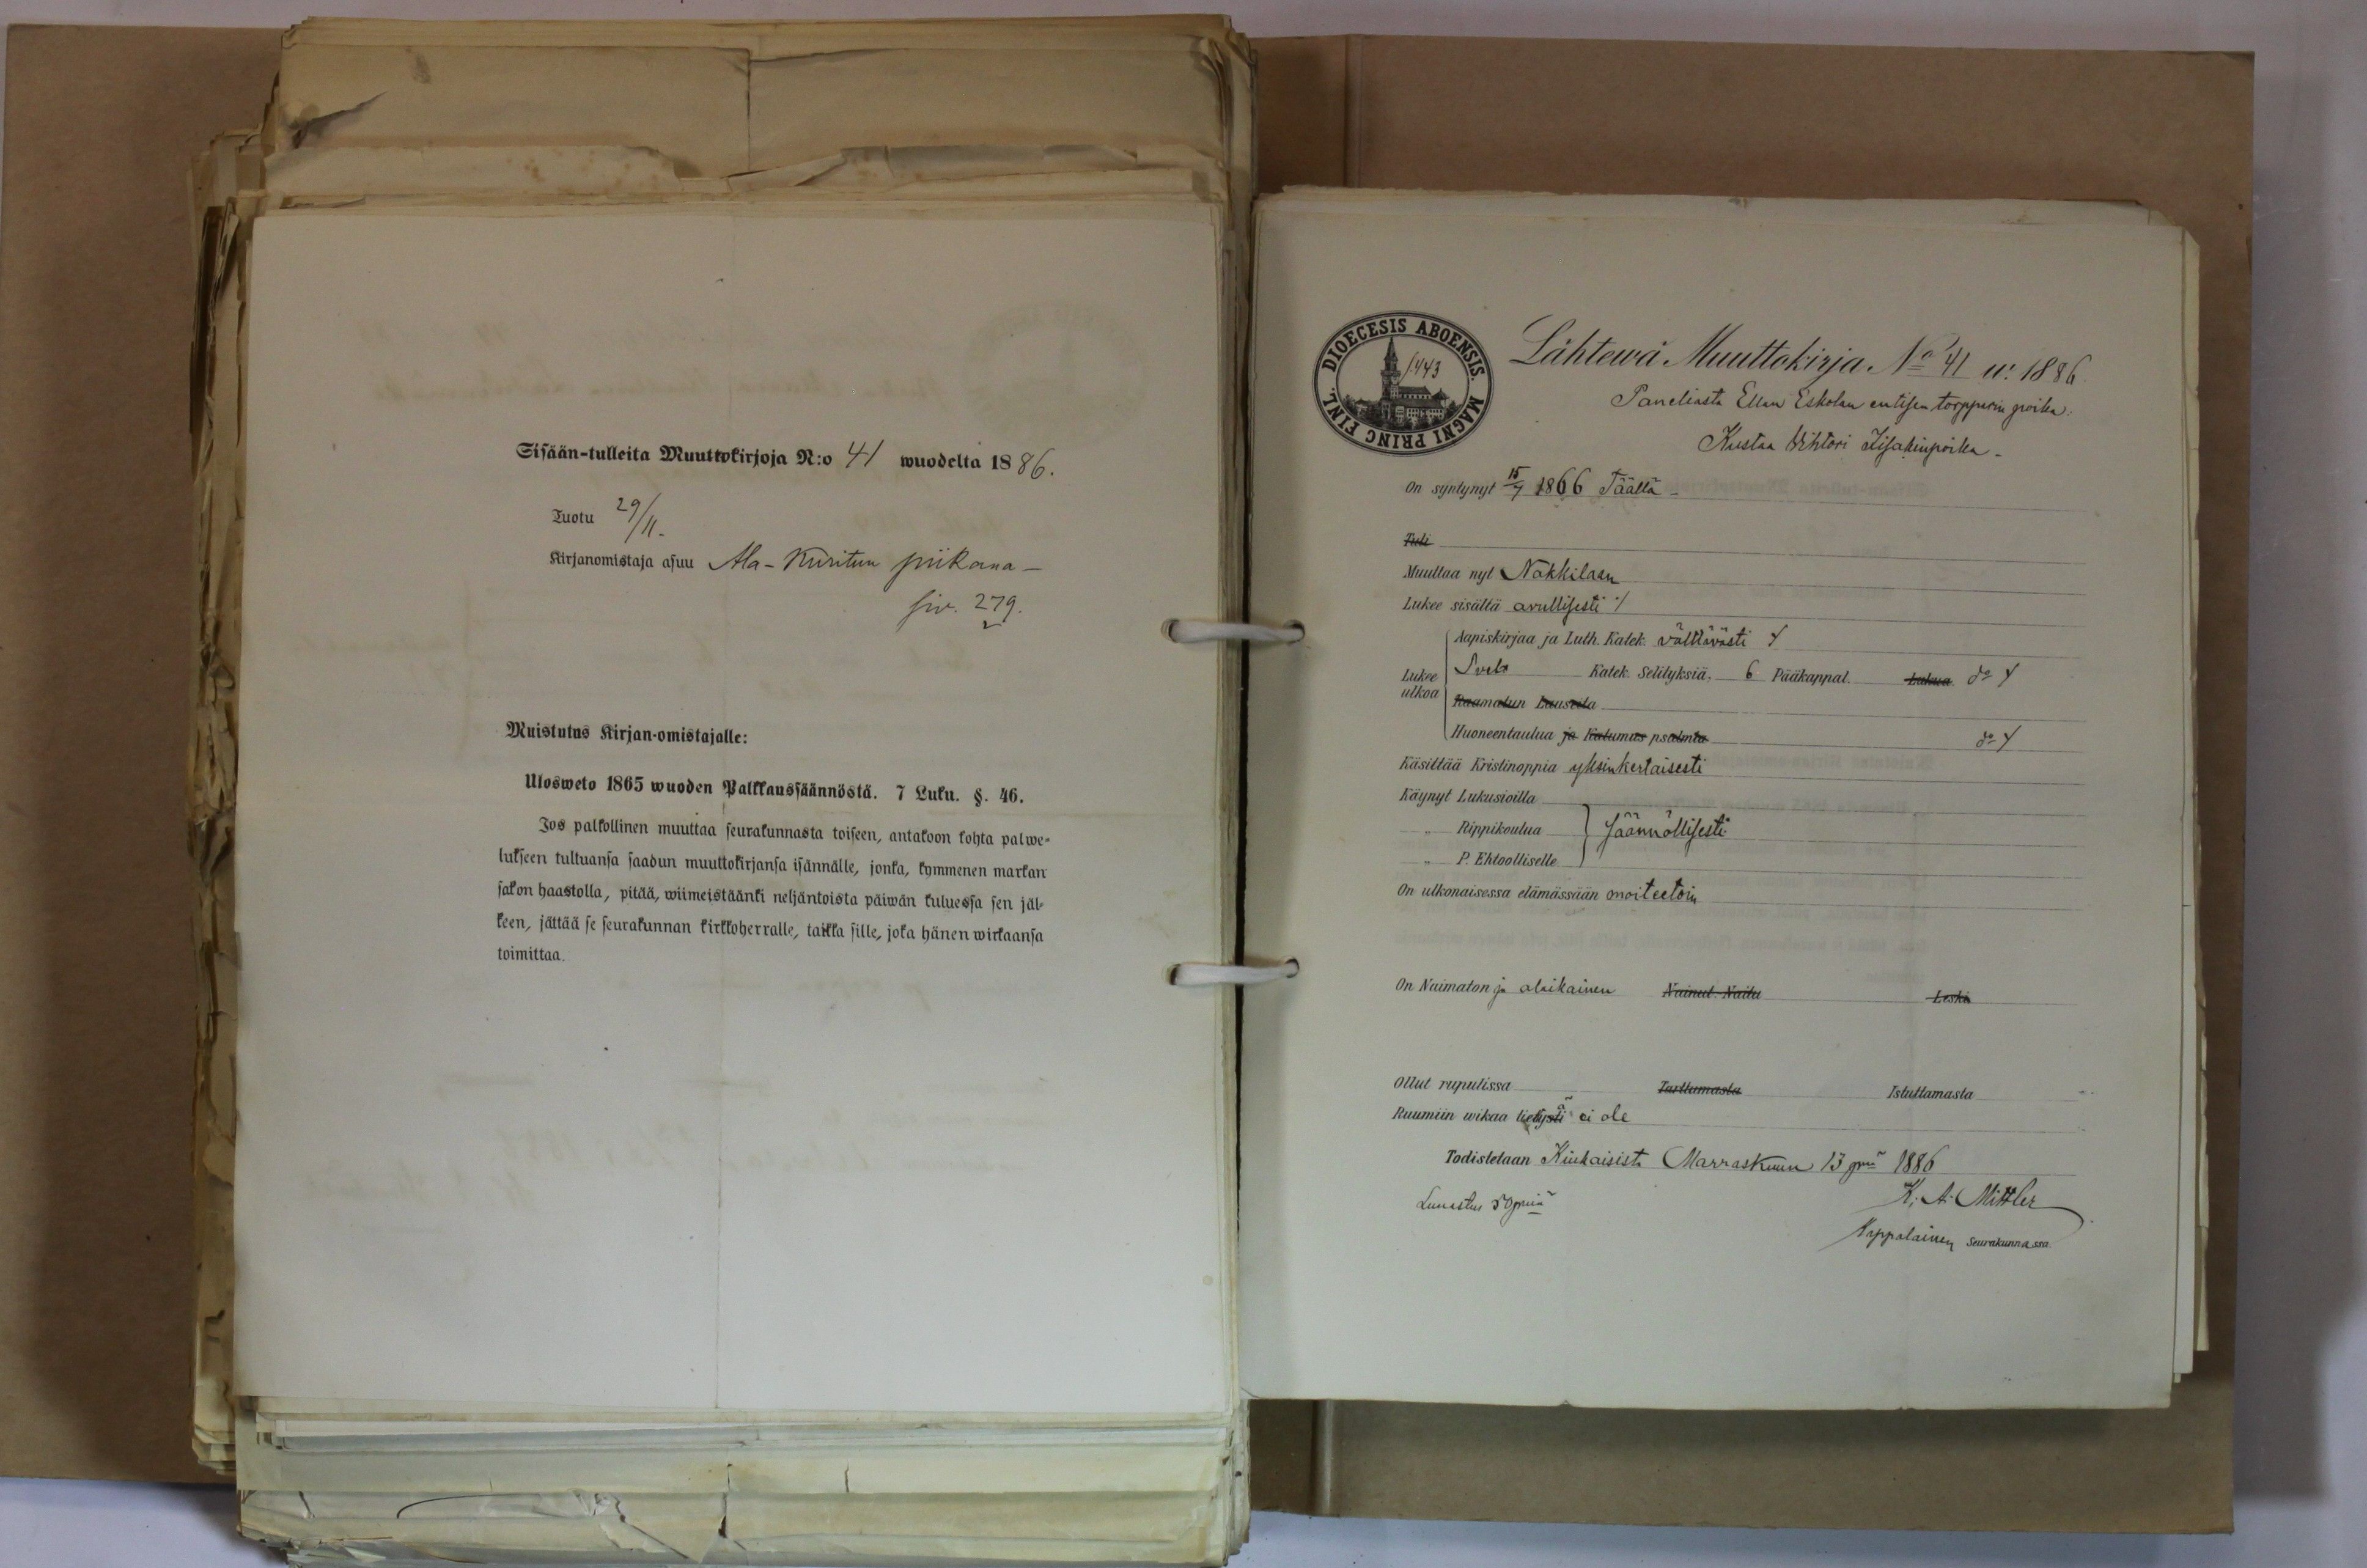 Sisään-tulleita Muuttokirjoja N:o 41 wuodelta 1886.
Tuotu 29/11.
Kirjanomistaja asuu Ala-Kuritun piikana —
siv. 279.
Muistutus Kirjan-omistajalle:
Ulosweto 1865 wuoden Palkkaussäännöstä. 7 Luku. §. 46.
Jos palkollinen muuttaa seurakunnasta toiseen, antakoon kohta palwe-
lukseen tultuansa saadun muuttokirjansa isännälle, jonka, kymmenen markan
sakon haastolla, pitää, wiimeistäänki neljäntoista päiwän kuluessa sen jäl-
keen, jättää se seurakunnan kirkkoherralle, taikka sille, joka hänen wirkaansa
toimittaa.
DIOECESIS ABOENSIS. MAGNI PRINC FINL.
1443
Lähtewä Muuttokirja No 41 w. 1886.
Paneliasta Ellan Eskolan entisen torpparin poika.
Kustaa Vihtori Iisakinpoika -
On syntynyt 15/4 1866 Täällä -
Tuli
Muuttaa nyt Nakkilaan
Lukee sisältä avullisesti
Lukee ulkoa
Aapiskirjaa ja Luth. Katek. välttävästi
Sveb Katek. Selityksiä, 6 Pääkappal. Lukua. do
Raamatun Lauseita
Huoneentaulua ja Katumus psalmia do
Käsittää Kristinoppia yksinkertaisesti
Käynyt Lukusioilla
„ Rippikoulua
Säännöllisesti
„ P. Ehtoolliselle
On ulkonaisessa elämässään moiteetoin
On Naimaton ja alaikainen Nainut. Naitu Leski
Ollut rupulissa Tarttumasta Istuttamasta
Ruumiin wikaa tietysti ei ole
Todistetaan Kiukaisista Marraskuun 13 pnä 1886
Lunastus 50 penniä
K. A. Mittler
Kappalainen Seurakunnassa.